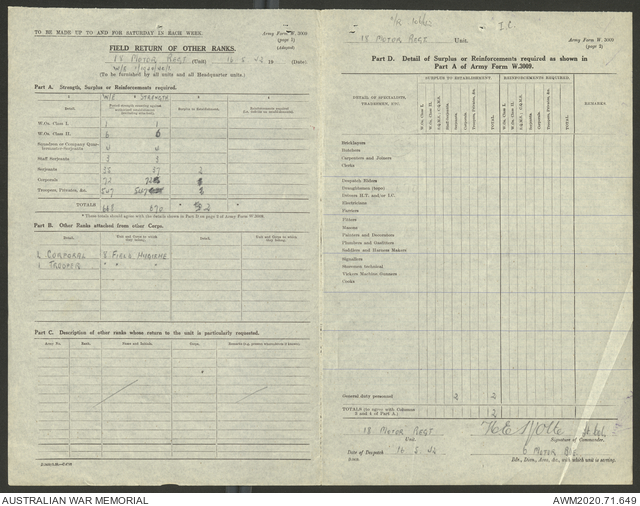 TO BE MADE UP TO AND FOR SATURDAY IN EACH WEEK.
Army Form W. 3009
(page 2)
(Adapted)
FIELD RETURN OF OTHER RANKS.
18 MOTOR REGT (Unit) 16.5.42 19 (Date)
(To be furnished by all units and all Headquarter units.)
Part A. Strength, Surplus or Reinforcements required.
W/E STRENGTH
Detail.
Surplus to Establishment.
W.Os. Class I. 1 1
W.Os. Class II. 6 6
Squadron or Company Quar-
termaster-Serjeants 4 4
Staff Serjeants 3 3
Serjeants 35 37 2
Corporals 72 72
Troopers, Privates, &c. 547 547
TOTALS 668 670 2
* These totals should agree with the details shown in Part D on page 3 of Army Form W. 3009.
Part B. Other Ranks attached from other Corps.
1 CORPORAL 8 FIELD HYGIENE
1 TROOPER " " "
Part C. Description of other ranks whose return to the unit is particularly requested.
Army No. Rank. Name and Initials.
I.C.
18 MOTOR REGT Unit.
Army Form W. 3009
(page 3)
Part D. Detail of Surplus or Reinforcements required as shown in
Part A of Army Form W.3009.
DETAIL OF SPECIALISTS, TRADESMEN, ETC.
SURPLUS TO ESTABLISHMENT.
REINFORCEMENTS REQUIRED.
REMARKS
W.Os. Class I.
W.Os. Class II.
Staff-Serjeants.
Serjeants.
Corporals.
Troopers, Privates, &c.
TOTAL.
W.Os. Class I.
W.Os. Class II.
Serjeants.
Corporals.
Troopers, Privates, &c.
TOTAL.
Butchers
Carpenters and Joiners
Clerks
Despatch Riders
Draughtsmen (topo)
Drivers H.T. and/or I.C.
Electricians
Farriers
Fitters
Masons
Painters and Decorators
Plumbers and Gasfitters
Saddlers and Harness Makers
Signallers
Storemen technical
Vickers Machine Gunners
Cooks
General duty personnel 2 2
TOTALS (to agree with Columns
3 and 4 of Part A.) 2
18 MOTOR REGT
Unit.
Signature of Commander.
Date of Despatch 16.5.42
6 MOTOR BDE
Bde., Divn., Area, &c., with which unit is serving.
AUSTRALIAN WAR MEMORIAL
AWM2020.71.649